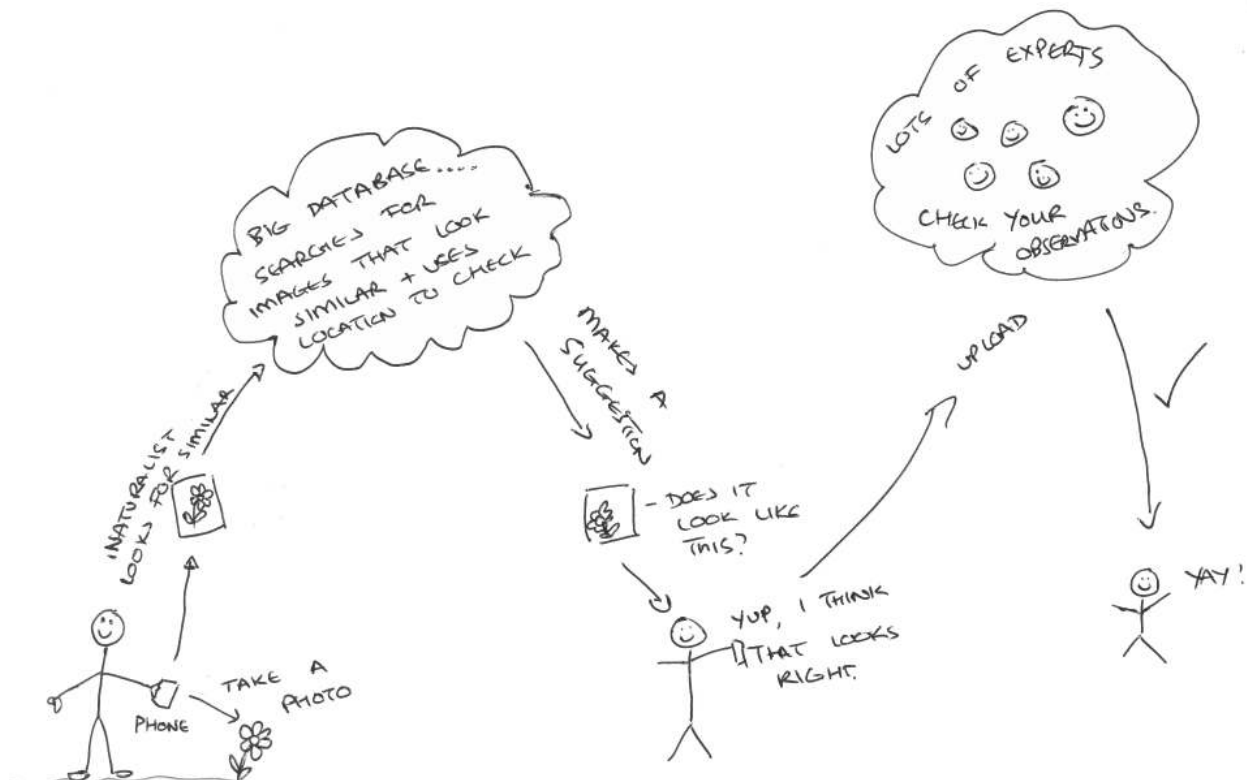 PHONE
TAKE A
PHOTO
INATURALIST
LOOKS FOR SIMILAR
BIG DATABASE.....
SEARCHES FOR
IMAGES THAT LOOK
SIMILAR + USES
LOCATION TO CHECK
MAKES A
SUGGESTION
- DOES IT
LOOK LIKE
THIS?
YUP, I THINK
THAT LOOKS
RIGHT.
UPLOAD
LOTS OF EXPERTS
CHECK YOUR
OBSERVATIONS.
YAY!